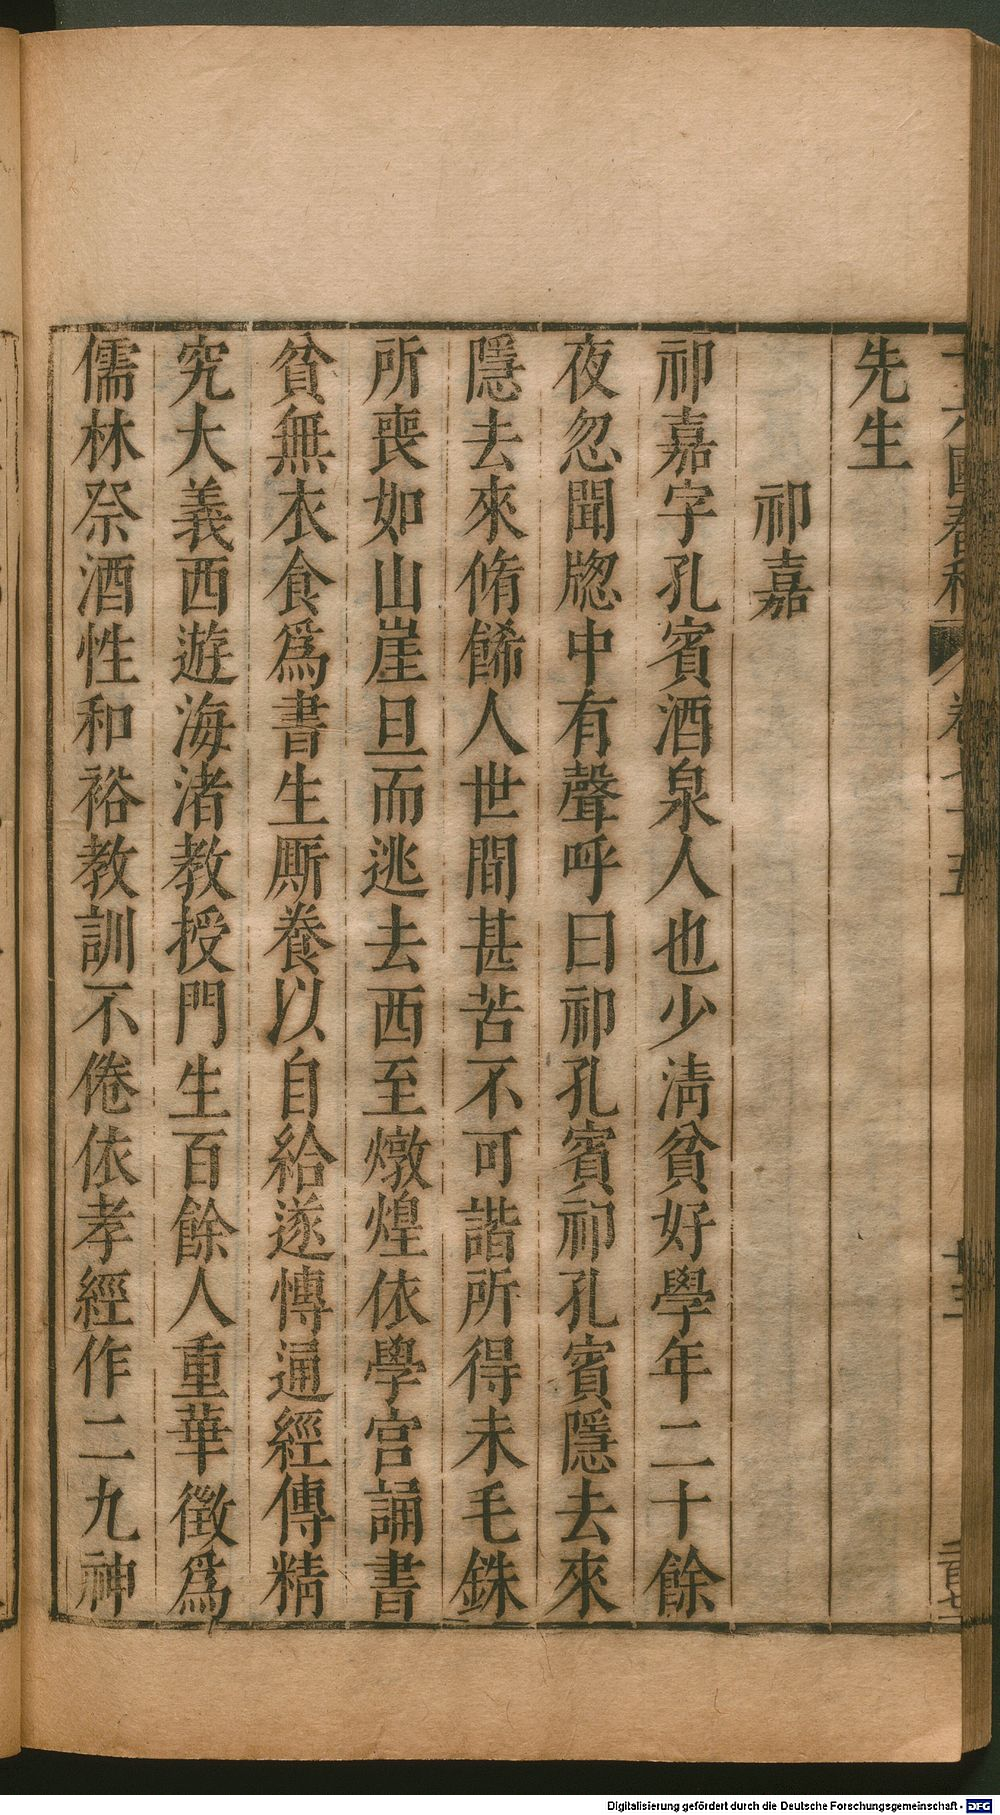 十六國春秋 卷七十五 十三
先生
祁嘉
祁嘉字孔賓酒泉人也少清貧好學年二十餘
夜忽聞牎中有聲呼曰祁孔賓祁孔賓隱去來
隱去來脩餙人世間甚苦不可諧所得未毛銖
所喪如山崖旦而逃去西至燉煌依學宮誦書
貧無衣食爲書生厮養以自給遂愽通經傳精
究大義西遊海渚教授門生百餘人重華徵爲
儒林祭酒性和裕教訓不倦依孝經作二九神
Digitalisierung gefördert durch die Deutsche Forschungsgemeinschaft - DFG